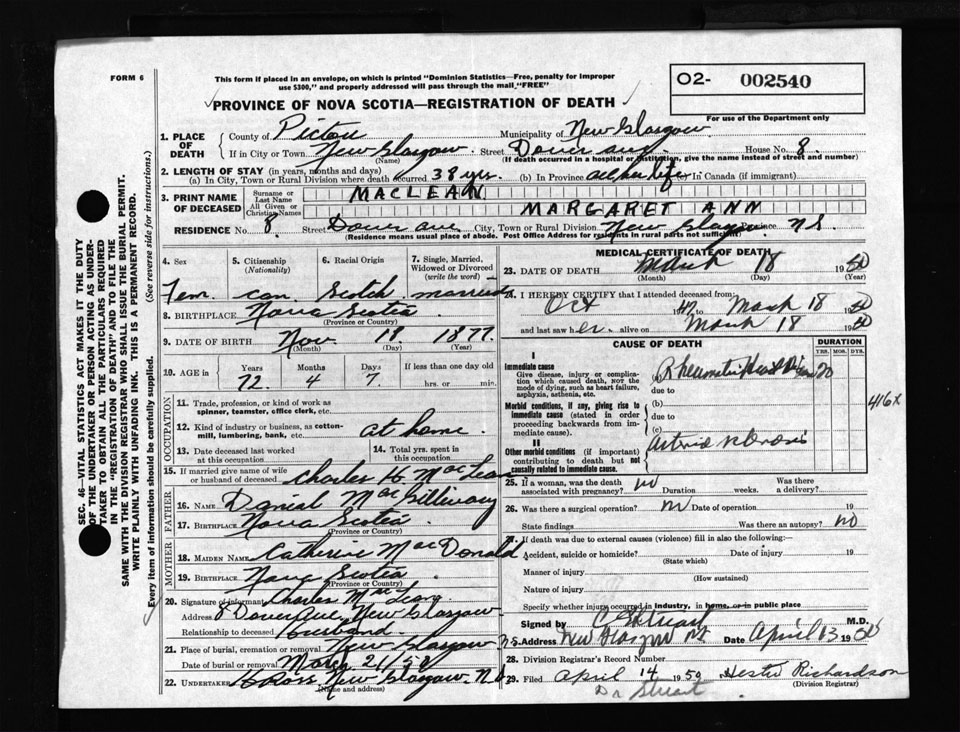 FORM 6
This form if placed in an envelope, on which is printed "Dominion Statistics—Free, penalty for improper
use $300," and properly addressed will pass through the mail "FREE"
O2- 002540
For use of the Department only
PROVINCE OF NOVA SCOTIA—REGISTRATION OF DEATH
1. PLACE OF DEATH
County of Pictou Municipality of New Glasgow
If in City or Town New Glasgow. Street Dover ave House No. 8.
(Name) (If death occurred in a hospital or institution, give the name instead of street and number)
2. LENGTH OF STAY (in years, months and days)
(a) In City, Town or Rural Division where death occurred 38 yrs. (b) In Province all her life (c) In Canada (if immigrant)
3. PRINT NAME OF DECEASED
Surname or Last Name MACLEAN
All Given or Christian Names MARGARET ANN
RESIDENCE No. 8 Street Dover ave City, Town or Rural Division New Glasgow Province N S.
(Residence means usual place of abode. Post Office Address for residents in rural parts not sufficient)
4. Sex 5. Citizenship (Nationality) 6. Racial Origin 7. Single, Married, Widowed or Divorced (write the word)
Fem. can Scotch married
8. BIRTHPLACE Nova Scotia
(Province or Country)
9. DATE OF BIRTH Nov. 18. 1877.
(Month) (Day) (Year)
10. AGE in Years Months Days If less than one day old
72. 4 7. hrs. or min.
OCCUPATION
11. Trade, profession, or kind of work as spinner, teamster, office clerk, etc.
12. Kind of industry or business, as cotton-mill, lumbering, bank, etc. at home
13. Date deceased last worked at this occupation 14. Total yrs. spent in this occupation
15. If married give name of wife or husband of deceased Charles H MacLean
FATHER
16. Name Danial MacGillivary
17. BIRTHPLACE Nova Scotia.
(Province or Country)
MOTHER
18. MAIDEN NAME Catherine MacDonald
19. BIRTHPLACE Nova Scotia
(Province or Country)
20. Signature of informant Charles McLean
Address 8 Dover Ave, New Glasgow
Relationship to deceased husband
21. Place of burial, cremation or removal New Glasgow N.S.
Date of burial or removal March 21/50
22. UNDERTAKER H Ross New Glasgow. N.S
(Name and address)
MEDICAL CERTIFICATE OF DEATH
23. DATE OF DEATH March 18 1950
(Month) (Day) (Year)
24. I HEREBY CERTIFY that I attended deceased from:
Oct to March 18 1950
and last saw her alive on March 18 1950
CAUSE OF DEATH
DURATION
YRS. MOS. DYS.
I
Immediate cause
Give disease, injury or complication which caused death, NOT the mode of dying, such as heart failure, asphyxia, asthenia, etc.
(a) Rheumatic Heart Disease 20
due to
416X
Morbid conditions, if any, giving rise to immediate cause (stated in order proceeding backwards from immediate cause).
(b)
due to
(c)
II
Other morbid conditions (if important) contributing to death but not causally related to immediate cause.
25. If a woman, was the death associated with pregnancy? no Duration weeks. Was there a delivery?
26. Was there a surgical operation? Date of operation 19
State findings Was there an autopsy? no
27. If death was due to external causes (violence) fill in also the following:—
Accident, suicide or homicide? Date of injury 19
(State which)
Manner of injury
(How sustained)
Nature of injury
Specify whether injury occurred in industry, in home, or in public place
Signed by M.D.
Address New Glasgow NS Date April 13 1950
28. Division Registrar's Record Number
29. Filed April 14 1950 Hester Richardson
(Division Registrar)
Dr Stuart
SEC. 46—VITAL STATISTICS ACT MAKES IT THE DUTY
OF THE UNDERTAKER OR PERSON ACTING AS UNDER-
TAKER TO OBTAIN ALL THE PARTICULARS REQUIRED
IN THE "REGISTRATION OF DEATH" AND TO FILE THE
SAME WITH THE DIVISION REGISTRAR WHO SHALL ISSUE THE BURIAL PERMIT.
WRITE PLAINLY WITH UNFADING INK. THIS IS A PERMANENT RECORD.
Every item of information should be carefully supplied. (See reverse side for instructions.)